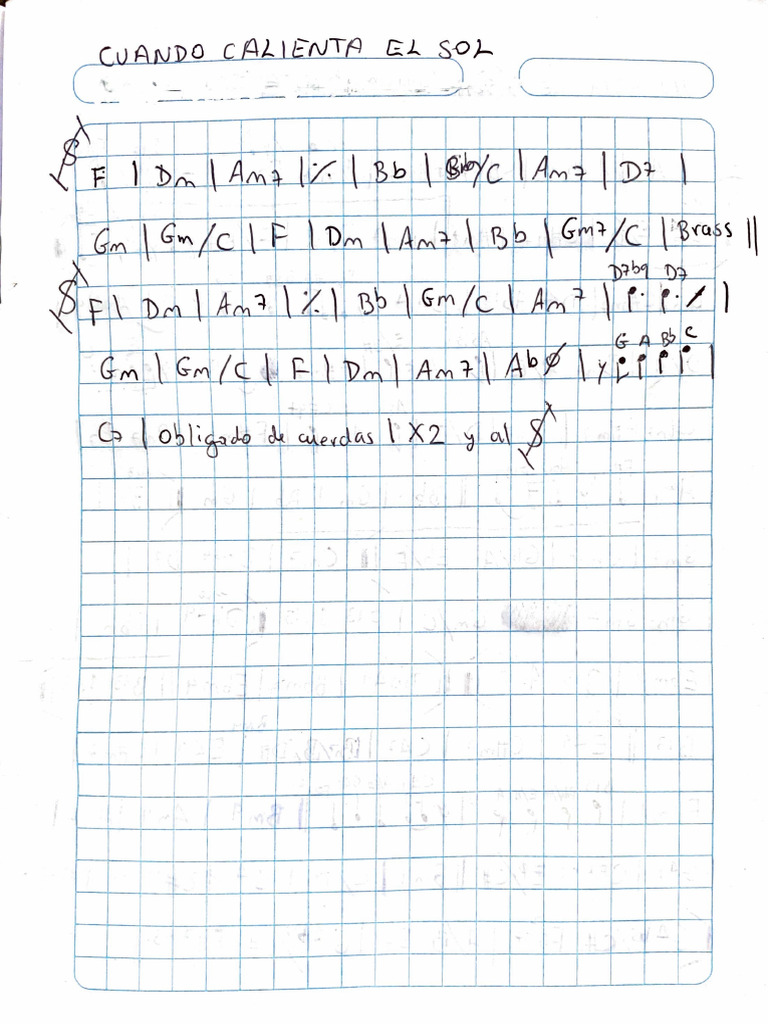 CUANDO CALIENTA EL SOL
F | Dm | Am7 | % | Bb | Bb/C | Am7 | D7 |
Gm | Gm/C | F | Dm | Am7 | Bb | Gm7/C | Brass ||
D7b9 D7
F | Dm | Am7 | % | Bb | Gm/C | Am7 | |
G A Bb C
Gm | Gm/C | F | Dm | Am7 | Abø | |
C7 | Obligado de cuerdas | X2 y al